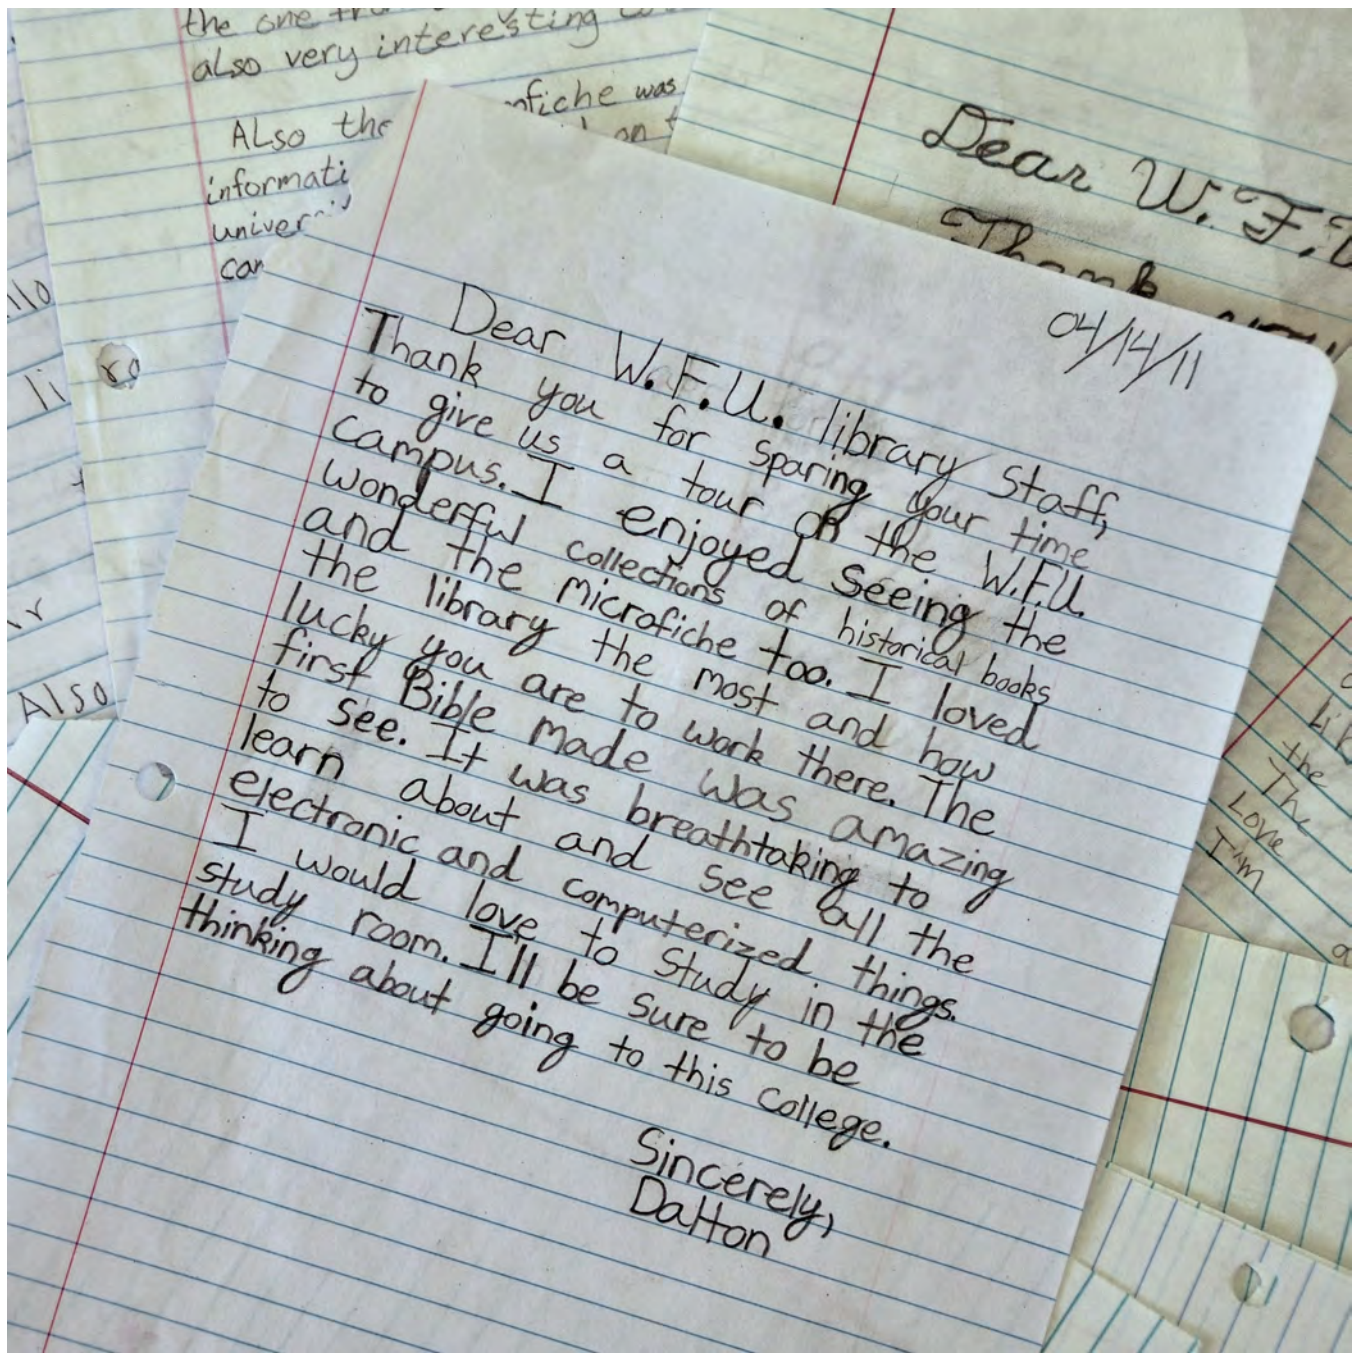 the one
also very interesting
Also the
nfiche was
on
informati
univer
can
Dear W. F.
Thank
04/14/11
Dear W. F. U. library staff,
Thank you for sparing your time
to give us a tour on the W.F.U.
campus. I enjoyed seeing the
wonderful collections of historical books
and the microfiche too. I loved
the library the most and how
lucky you are to work there. The
first Bible made was amazing
to see. It was breathtaking to
learn about and see all the
electronic and computerized things.
I would love to study in the
study room. I'll be sure to be
thinking about going to this college.
Sincerely,
Dalton
llo
li
Also
Lik
the
The
Love
I'm